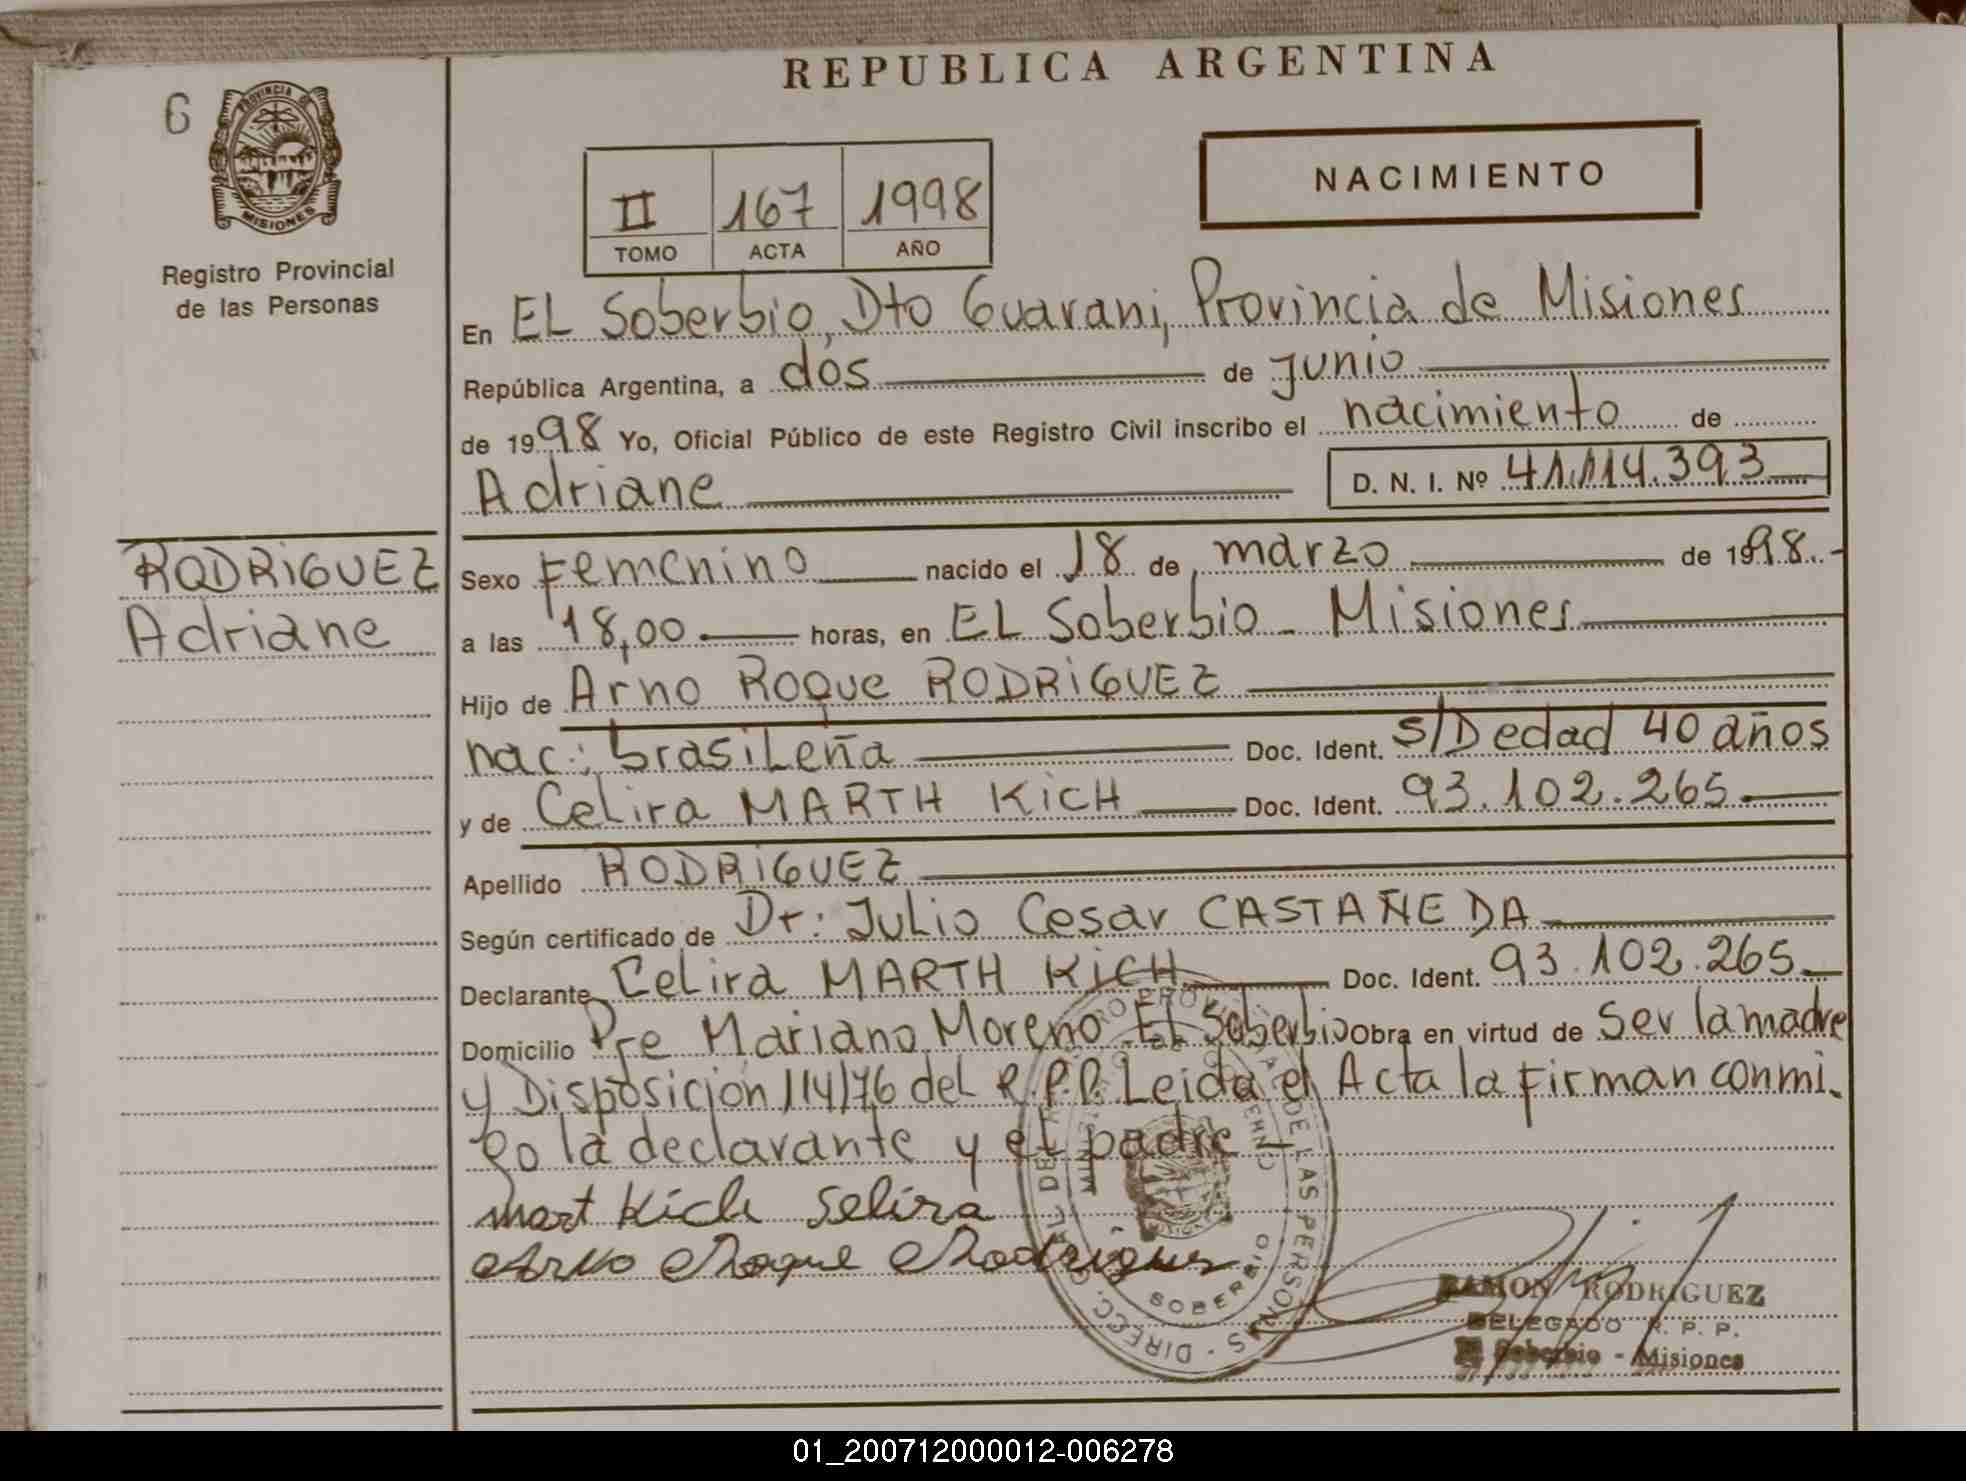 REPUBLICA ARGENTINA
6
PROVINCIA DE
MISIONES
Registro Provincial
de las Personas
II 167 1998
TOMO ACTA AÑO
NACIMIENTO
En EL Soberbio, Dto Guarani, Provincia de Misiones
República Argentina, a dos de junio
de 1998 Yo, Oficial Público de este Registro Civil inscribo el nacimiento de
Adriane D. N. I. Nº 41.114.393
RODRIGUEZ
Adriane
Sexo Femenino nacido el 18 de marzo de 1998.-
a las 18,00 horas, en EL Soberbio - Misiones
Hijo de Arno Roque RODRIGUEZ
nac: brasileña Doc. Ident. S/D edad 40 años
y de Celira MARTH KicH Doc. Ident. 93.102.265
Apellido RODRIGUEZ
Según certificado de Dr: Julio Cesar CASTAÑEDA
Declarante Celira MARTH KiCH Doc. Ident. 93.102.265
Domicilio Pje Mariano Moreno El Soberbio Obra en virtud de Ser la madre
y Disposición 114/76 del R.P.P. Leida el Acta la Firman conmi-
go la declarante y el padre
mart Kich Selira
Arno Roque Rodrigues
DE LAS PERSONAS - DIRECC.
SOBERBIO
RAMON RODRIGUEZ
DELEGADO R. P. P.
El Soberbio - Misiones
01_200712000012-006278